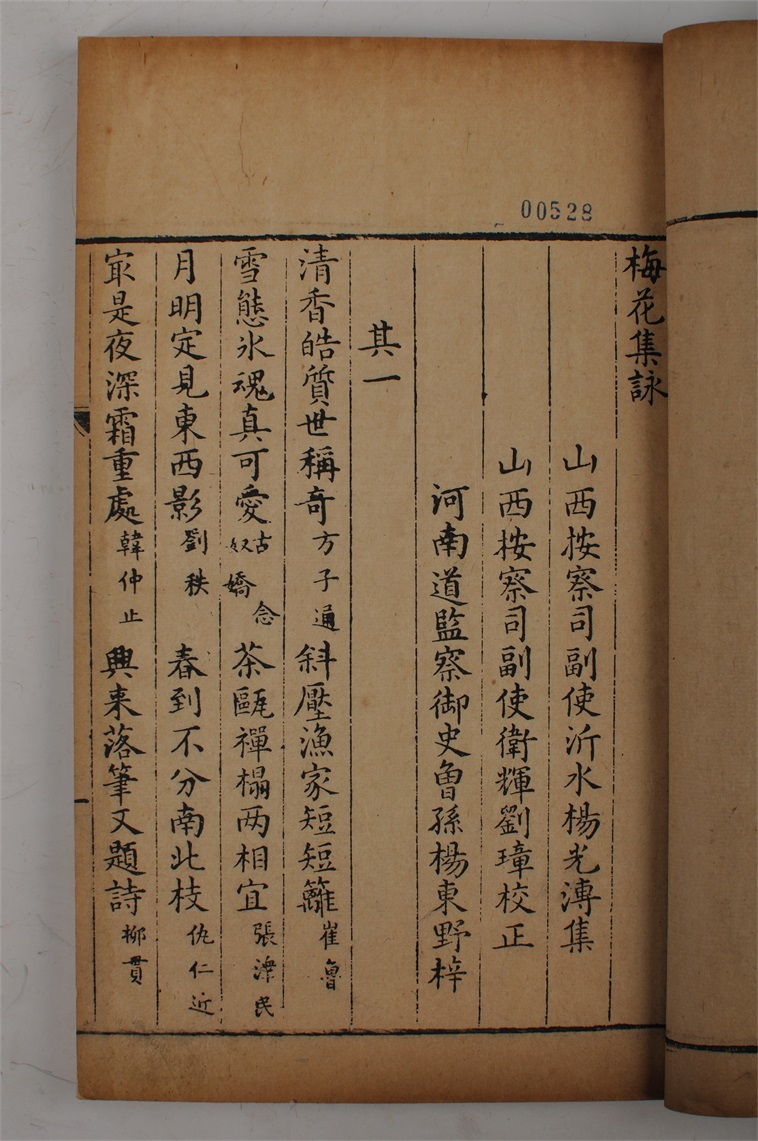 00528
梅花集詠
山西按察司副使沂水楊光溥集
山西按察司副使衛輝劉璋校正
河南道監察御史魯孫楊東野梓
其一
清香皓質世稱奇方子通斜壓漁家短短籬崔魯
雪態氷魂真可愛古念奴嬌茶甌禪榻两相宜張澤民
月明定見東西影劉秩春到不分南北枝仇仁近
冣是夜深霜重處韓仲止興来落筆又題詩柳貫